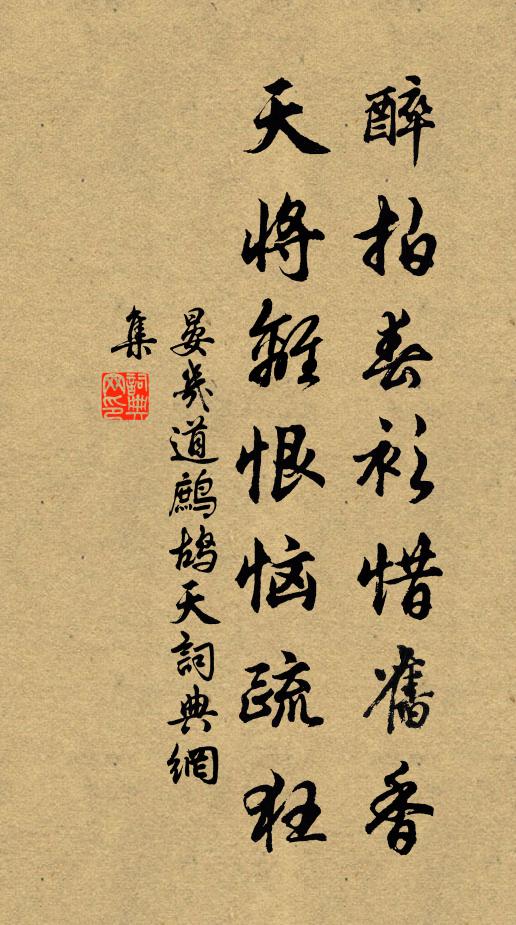 醉拍春衫惜舊香
天將離恨惱疏狂
晏幾道鷓鴣天詞典網
集
詞典網印